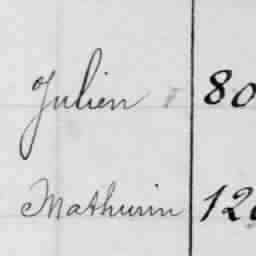 Julien 80
Mathurin 12